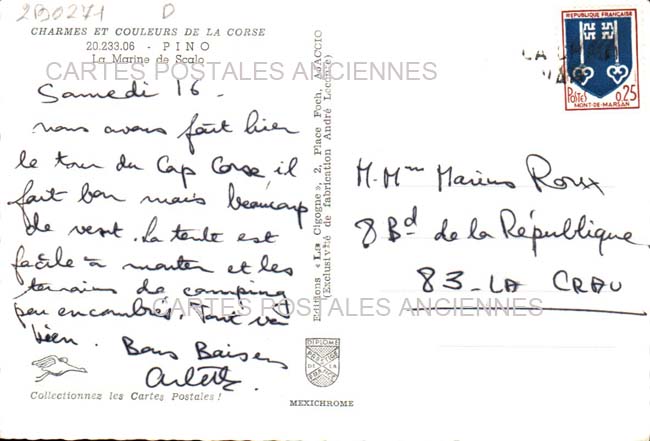 2B0271 D
CHARMES ET COULEURS DE LA CORSE
20.233.06 - PINO
La Marine de Scalo
CARTES POSTALES ANCIENNES
Samedi 16 -
nous avons fait hier
le tour du Cap Corse, il
fait bon mais beaucoup
de vent. La tente est
facile à monter et les
terrains de camping
peu encombrés. Tout va
bien. Bons Baisers
Arlette.
Collectionnez les Cartes Postales !
Editions « La Cigogne », 2, Place Foch, AJACCIO
(Exclusivité de fabrication André Leconte)
DIPLOME
PRESTIGE
DE LA
FRANCE
MEXICHROME
REPUBLIQUE FRANÇAISE
POSTES 0,25
MONT-DE-MARSAN
LA CRAU
VAR
M. Mme Marius Roux
8 Bd de la République
83 - LA CRAU
CARTES POSTALES ANCIENNES